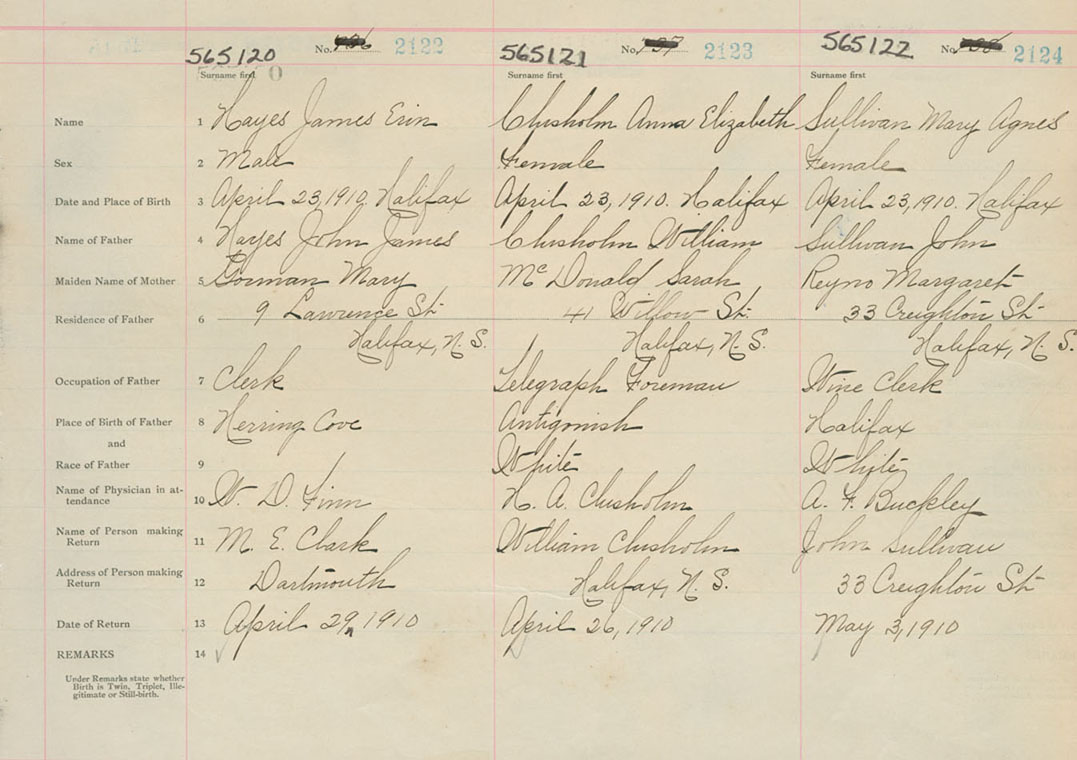 565120 No. 2122 565121 No. 737 2123 565122 No. 2124
Surname first Surname first Surname first
Name 1 Hayes James Erin Chisholm Anna Elizabeth Sullivan Mary Agnes
Sex 2 Male Female Female
Date and Place of Birth 3 April 23, 1910. Halifax April 23, 1910. Halifax April 23, 1910. Halifax
Name of Father 4 Hayes John James Chisholm William Sullivan John
Maiden Name of Mother 5 Gorman Mary McDonald Sarah Reyno Margaret
Residence of Father 6 9 Lawrence St. 41 Willow St. 33 Creighton St.
Halifax, N. S. Halifax, N. S. Halifax, N. S.
Occupation of Father 7 Clerk Telegraph Foreman Wine Clerk
Place of Birth of Father 8 Herring Cove Antigonish Halifax
and
Race of Father 9 White White
Name of Physician in at-
tendance 10 W. D. Finn H. A. Chisholm A. F. Buckley
Name of Person making
Return 11 M. E. Clark William Chisholm John Sullivan
Address of Person making
Return 12 Dartmouth Halifax, N. S. 33 Creighton St.
Date of Return 13 April 29, 1910 April 26, 1910 May 3, 1910
REMARKS 14
Under Remarks state whether
Birth is Twin, Triplet, Ille-
gitimate or Still-birth.